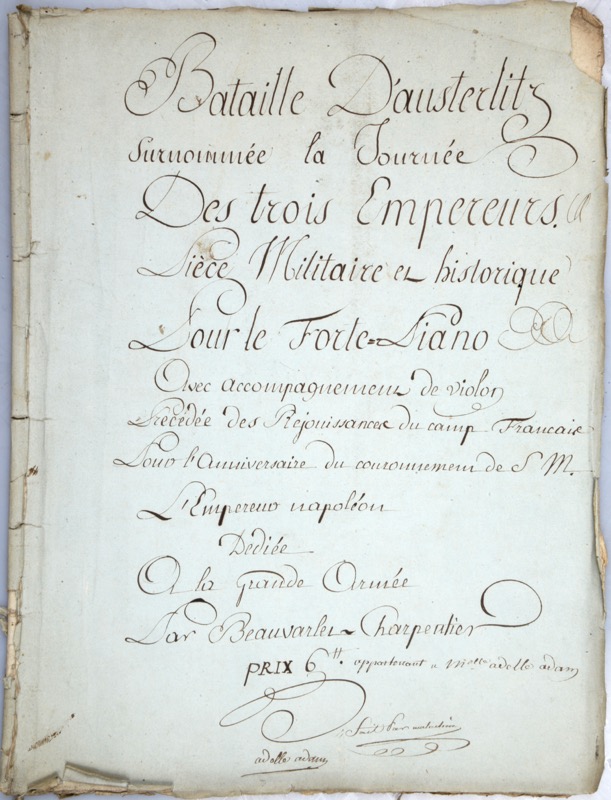 Bataille D'austerlitz
Surnommée la Journée
Des trois Empereurs.
Pièce Militaire et historique
Pour le Forte=Piano
Avec accompagnement de violon
Précédée des Rejouissances du camp Francais
Pour l'Anniversaire du couronnement de S. M.
L'Empereur napoléon
Dédiée
A la grande Armée
Par Beauvarlet-Charpentier
PRIX 6tt. appartenant a Melle adelle adam
fait Par
adelle adam